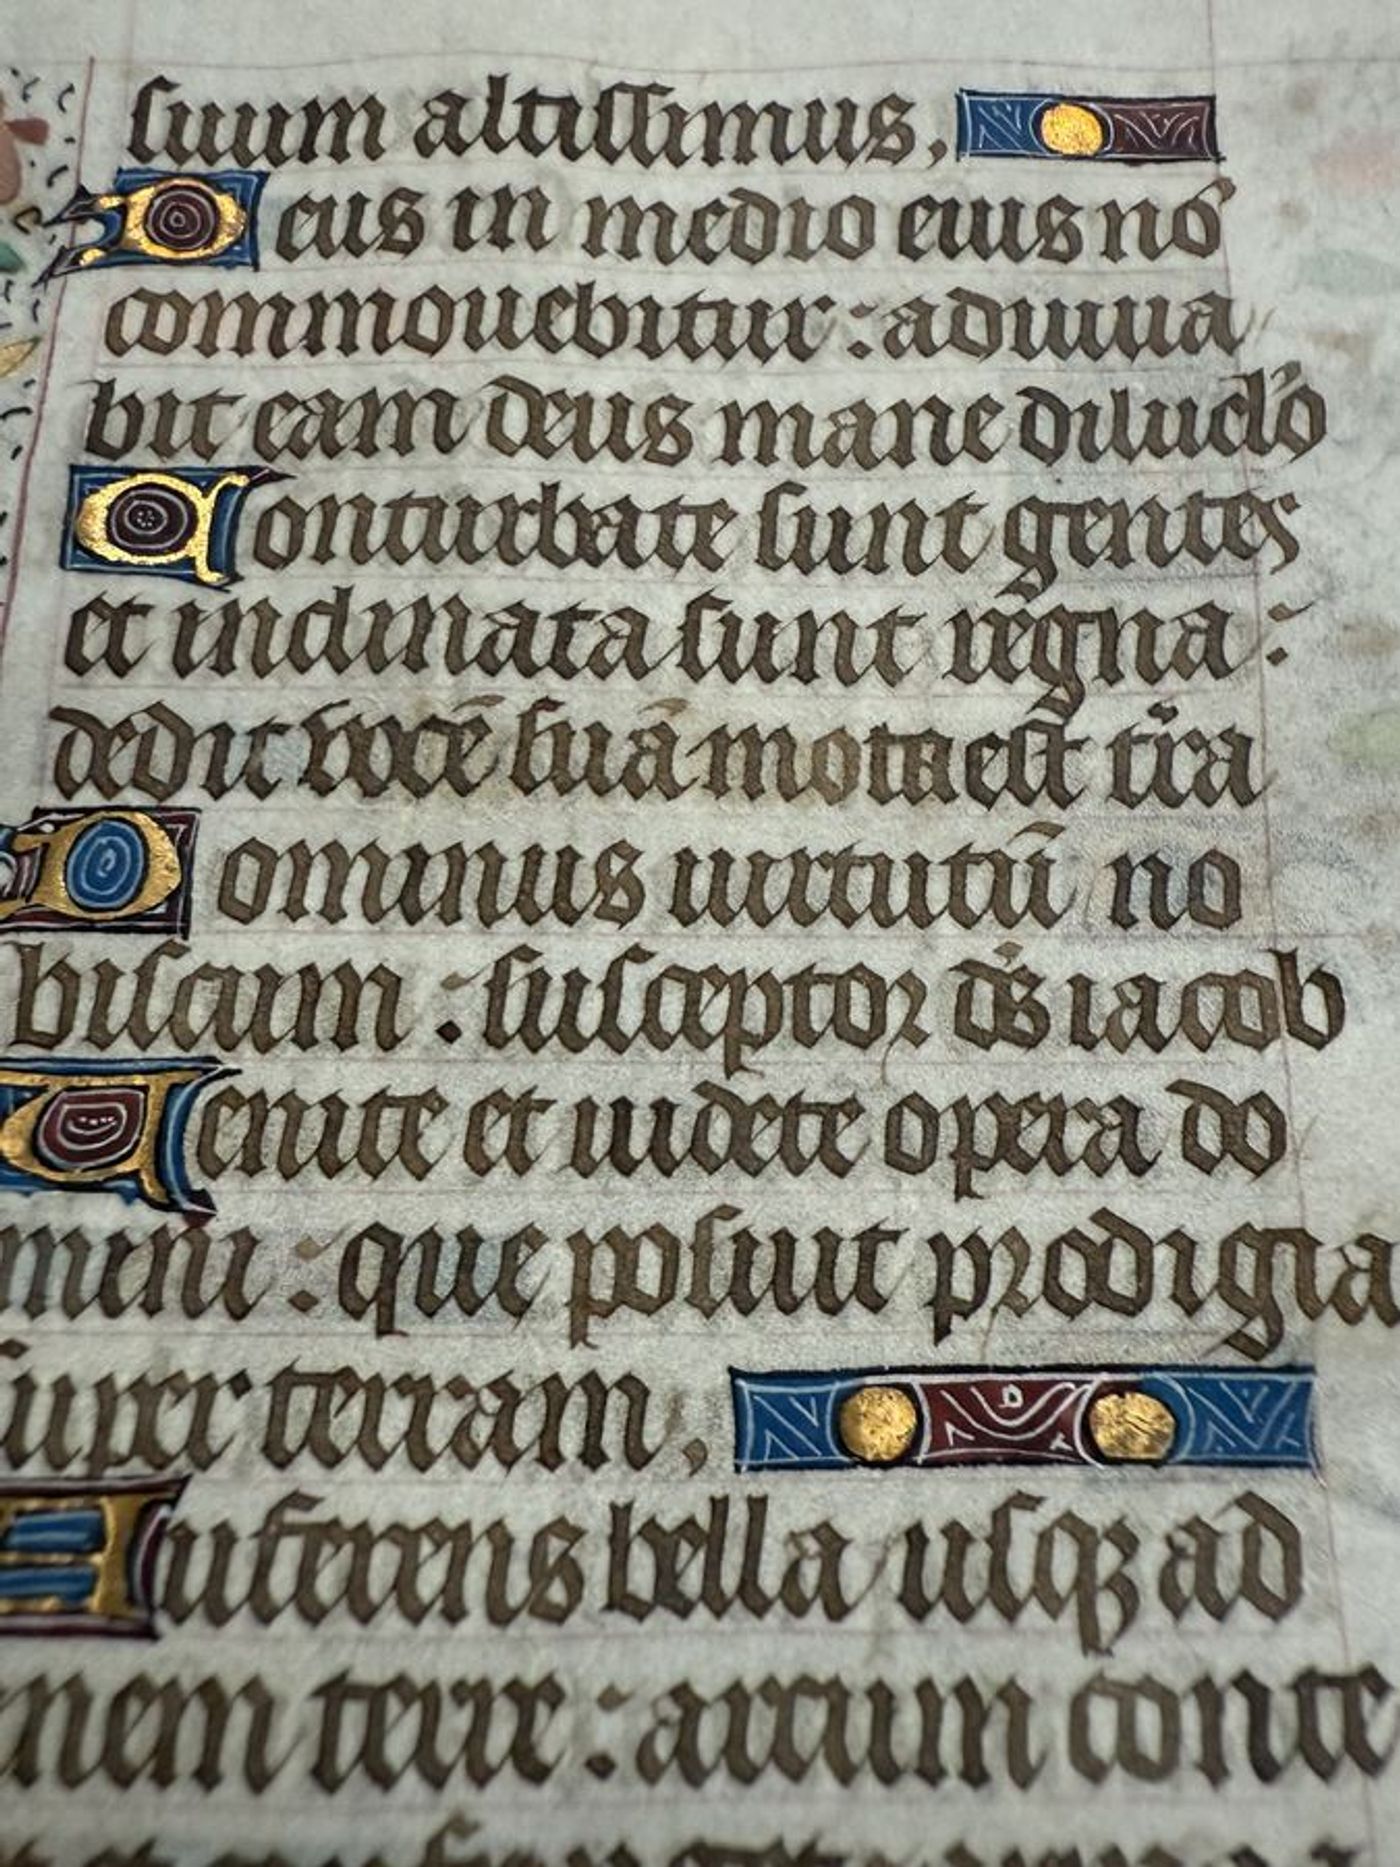 suum altissimus.
Deus in medio eius nō
commouebitur : adiuua
bit eam deus mane dilucl̓o
Conturbate sunt gentes
et inclinata sunt regna :
dedit vocē suā mota est t̃ra
Dominus uirtutū no
biscum : susceptor d̓s iacob
Uenite et uidete opera do
mini : que posuit prodigia
super terram.
Auferens bella usqꝫ ad
nem terre : arcum conte